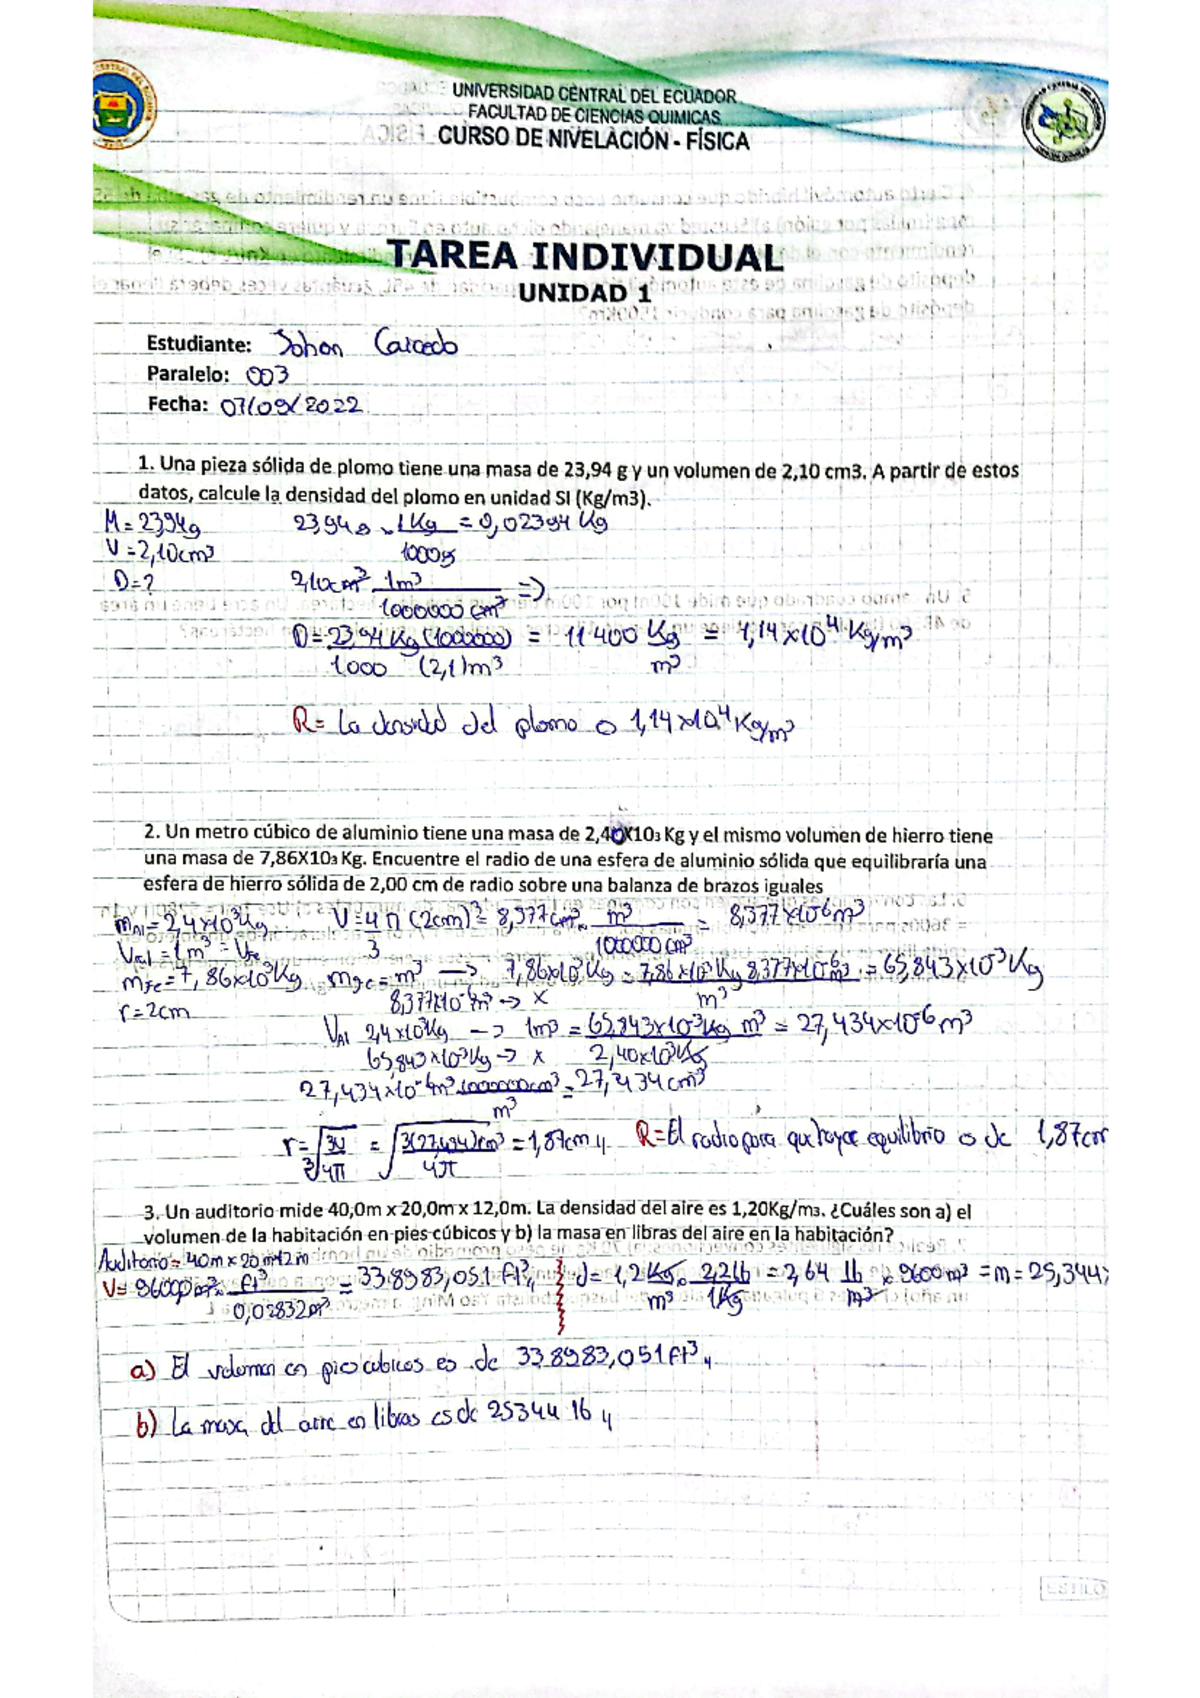 UNIVERSIDAD CENTRAL DEL ECUADOR
FACULTAD DE CIENCIAS QUIMICAS
CURSO DE NIVELACIÓN - FÍSICA
TAREA INDIVIDUAL
UNIDAD 1
Estudiante: Johan Caicedo
Paralelo: 003
Fecha: 07/09/2022
1. Una pieza sólida de plomo tiene una masa de 23,94 g y un volumen de 2,10 cm3. A partir de estos
datos, calcule la densidad del plomo en unidad SI (Kg/m3).
M = 23,94g 23,94g · 1Kg = 0,02394 Kg
V = 2,10cm³ 1000g
D = ? 2,10cm³ 1m³ =>
1000000 cm³
D = 23,94 Kg (1000000) = 11400 Kg = 1,14x10⁴ Kg/m³
1000 (2,1)m³ m³
R = La densidad del plomo o 1,14x10⁴ Kg/m³
2. Un metro cúbico de aluminio tiene una masa de 2,40X10₃ Kg y el mismo volumen de hierro tiene
una masa de 7,86X10₃ Kg. Encuentre el radio de una esfera de aluminio sólida que equilibraría una
esfera de hierro sólida de 2,00 cm de radio sobre una balanza de brazos iguales
mAl = 2,4x10³Kg V = 4 π (2cm)³ = 8,377cm³ · m³ = 8,377x10⁻⁶m³
VAl = 1m³ = Vfe 3 1000000 cm³
mFe = 7,86x10³Kg mFe = m³ → 7,86x10³Kg = 7,86x10³Kg 8,377x10⁻⁶m³ = 65,843x10⁻³Kg
r = 2cm 8,377x10⁻⁶m³ → x m³
VAl 2,4x10³Kg → 1m³ = 65,843x10⁻³Kg m³ = 27,434x10⁻⁶m³
65,843x10⁻³Kg → x 2,40x10³Kg
27,434x10⁻⁶m³ 1000000cm³ = 27,434cm³
m³
r = ³√3V = √3(27,434)cm³ = 1,87cm R = El radio para que haya equilibrio o de 1,87cm
4π 4π
3. Un auditorio mide 40,0m x 20,0m x 12,0m. La densidad del aire es 1,20Kg/m₃. ¿Cuáles son a) el
volumen de la habitación en pies cúbicos y b) la masa en libras del aire en la habitación?
Auditorio = 40m x 20m x 12m
V = 9600 m³ · ft³ = 338983,051 ft³ d = 1,2Kg · 2,2lb = 2,64 lb x 9600m³ = m = 25,344
0,02832m³ m³ 1Kg m³
a) El volumen en pies cubicos es de 338983,051 ft³
b) La masa del aire en libras es de 25344 lb
ESTILO